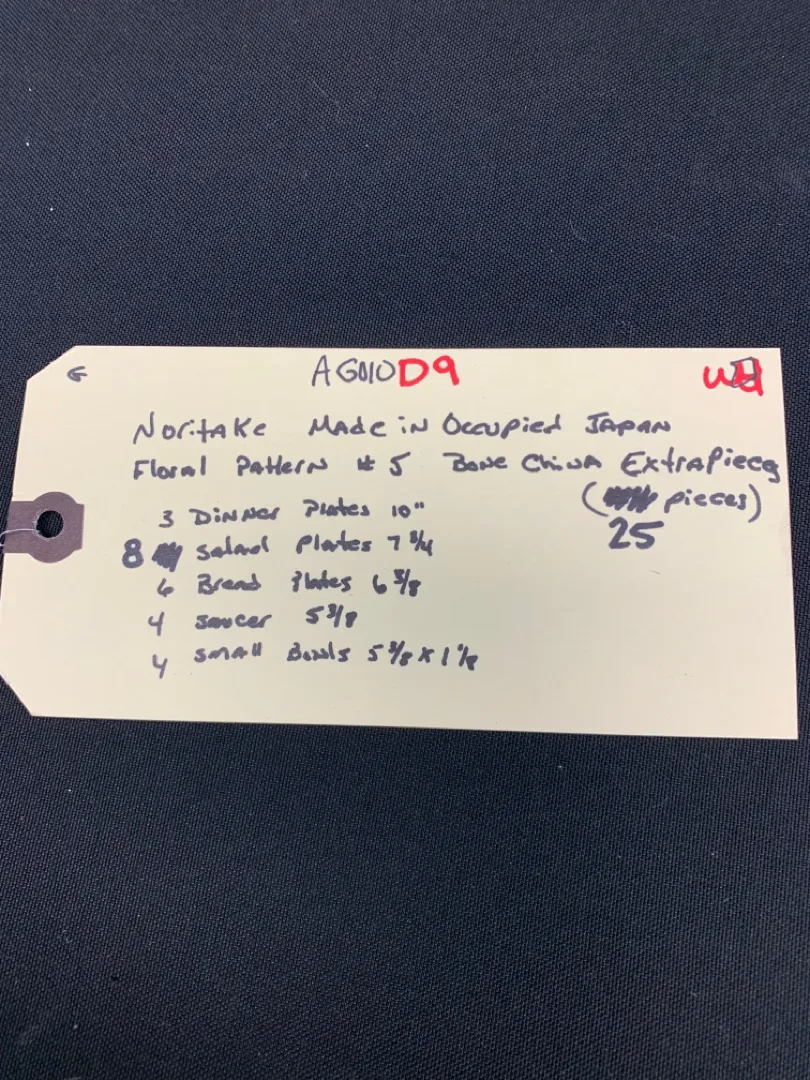 G AG010 D9
Noritake Made in Occupied Japan
Floral Pattern # 5 Bone China Extra Pieces
( pieces)
25
3 Dinner Plates 10"
8 Salad Plates 7 3/4
6 Bread Plates 6 3/8
4 Saucer 5 3/8
4 Small Bowls 5 3/8 x 1 1/8